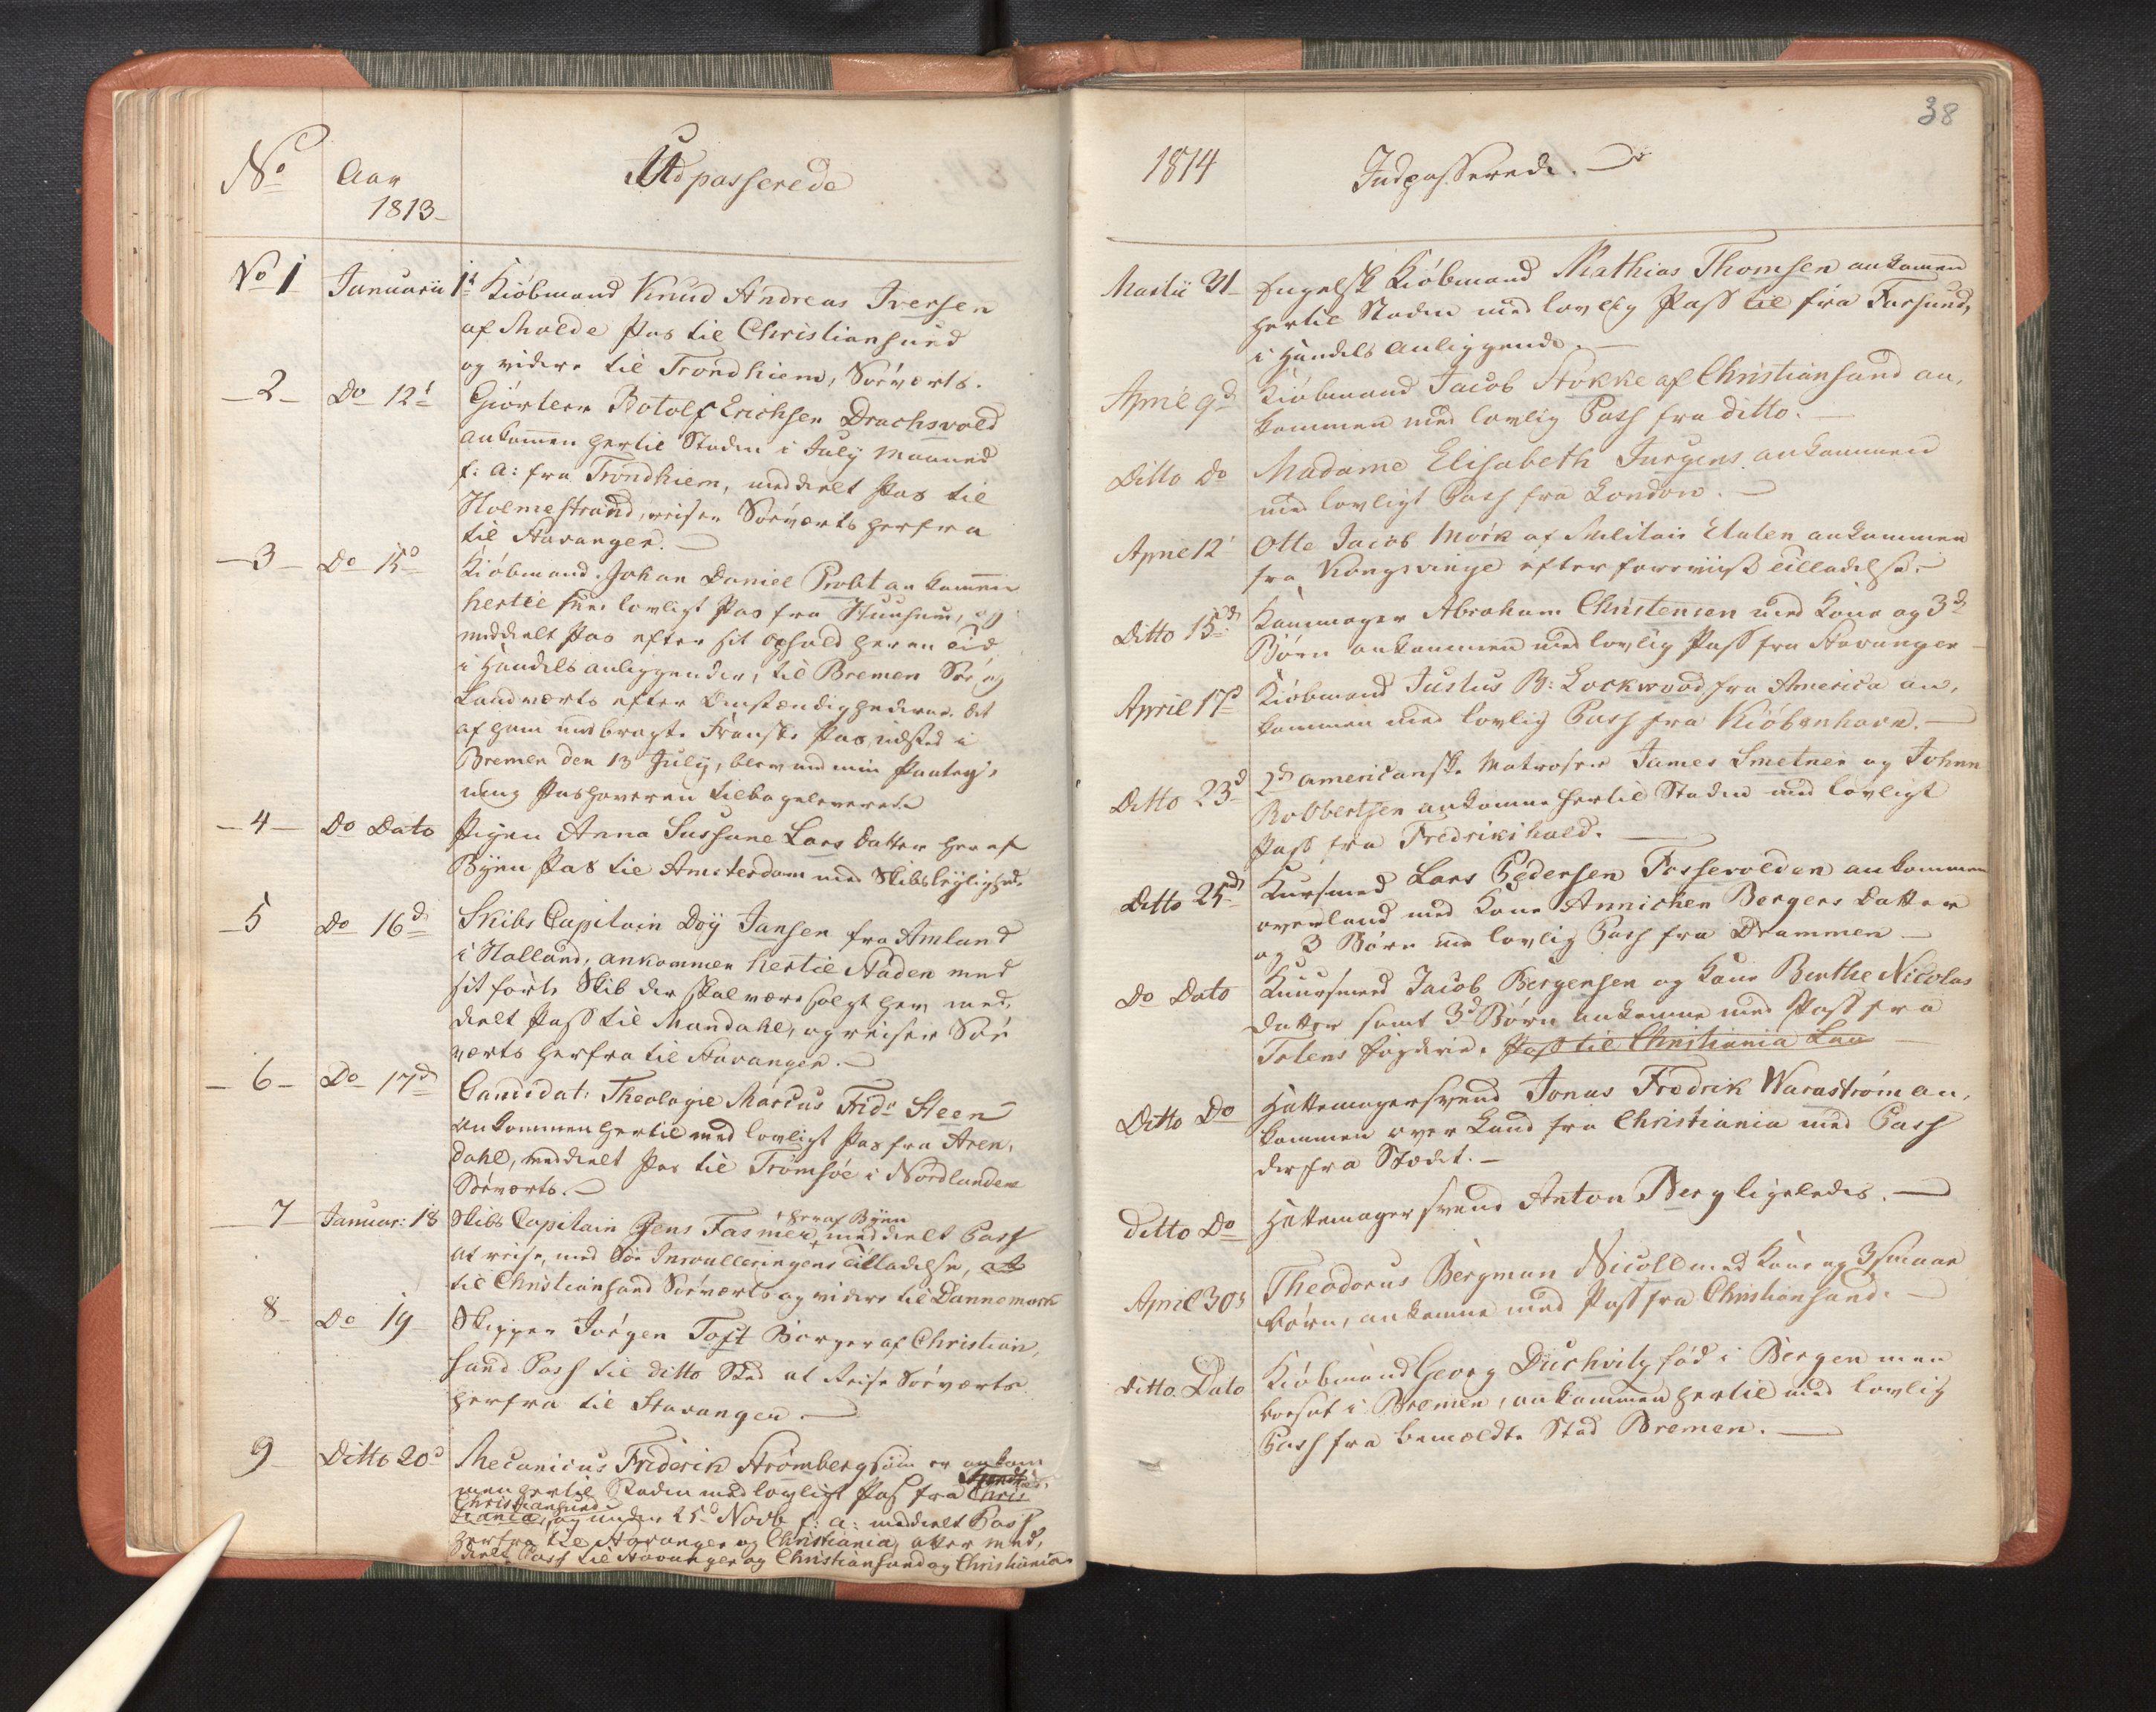 No Aar Udpasserede
1813
No 1 Januarii 1t Kiöbmand Knud Andreas Iversen
af Molde Pas til Christiansund
og videre til Trondhiem, Söeværts.
2 Do 12t Giörtler Botolf Erichsen Drachsvold
ankommen hertil Staden i July Maaned
f: a: fra Trondhiem, meddeelt Pas til
Holmestrand, reiser Söeværts herfra
til Stavanger.
3 Do 15d Kiöbmand Johan Daniel Probst ankommen
hertil med lovligt Pas fra Huusum, og
meddeelt Pas efter sit Ophold her en Tid
i Handels anliggender, til Bremen Söe og
Landværts efter Omstændighederne. Det
af ham medbragte Franske Pas, udsted i
Bremen den 13 July, blev med min Paateg,
ning Pashaveren tilbageleveret
4 Do Dato Pigen Anna Sussane Lars datter her af
Byen Pas til Amsterdam med Skibsleylighed.
5 Do 16d Skibs Capitain Doy Jansen fra Amland
i Holland, ankommen hertil Staden med
sit förte Skib der skal være solgt her, med,
deelt Pass til Mandahl, og reiser Söe
værts herfra til Stavanger.
6 Do 17d Candidat: Theologie Marcus Fridr Steen
ankommen hertil med lovligt Pas fra Aren,
dahl, meddeelt Pas til Tromsöe i Nordlandene
Söeværts.
7 Januar: 18 Skibs Capitain Jens Fasmer + her af Byen meddeelt Pass
at reise, med Söe Inroulleringens Tilladelse, at
til Christiansand Söeværts og videre til Dannemark
8 Do 19 Skipper Jörgen Toft Borger af Christian,
sand Pass til ditto Sted at Reise Söeværts
herfra til Stavanger.
9 Ditto 20d Mecanicus Friderik Strömberg som er ankom
men hertil Staden med lovligt Pas fra Chris
tiania, Christiansund og under 25d Novb f: a: meddeelt Pass
herfra til Stavanger og Christiania, atter med,
deelt Pass til Stavanger og Christiansand og Christiania.
38
1814 Indpasserede.
Martii 31 Engelsk Kiöbmand Mathias Thomsen ankommen
hertil Staden med lovlig Pass til fra Farsund,
i Handels Anliggende.
April 9d Kiöbmand Jacob Stokke af Christiansand an,
kommen med lovlig Pass fra ditto.
Ditto Do Madame Elisabeth Jurgens ankommen
med lovligt Pass fra London.
April 12 Otte Jacob Mörk af Militair Etaten ankommen
fra Kongsvinge efter foreviist Tilladelse.
Ditto 15d Kammager Abraham Christensen med Kone og 3d
Börn ankommen med lovlig Pass fra Stavanger
April 17d Kiöbmand Justus B: Lockwood fra America an,
kommen med lovlig Pass fra Kiöbenhavn.
Ditto 23d 2de americanske Matroser James Smetner og Johnn
Robbertsen ankomne hertil Staden med lovligt
Pass fra Fredrikshald.
Ditto 25d Kursmed Lars Pedersen Fossevolden ankommen
overland med Kone Annichen Bergers Datter
og 3 Börn med lovlig Pass fra Drammen
Do Dato Kuursmed Jacob Bergensen og Kone Berthe Nicolas
datter samt 3d Börn ankomne med Pass fra
Totens fogderie. Pass til Christiania Lan
Ditto Do Hattemagersvend Jonas Fredrik Warnström an,
kommen over Land fra Christiania med Pass
derfra Stedet.
ditto Do Hattemagersvend Anton Berg ligeledes.
April 30s Theodorus Bergman Nicoll med Kone og 3 smaae
börn, ankomne med Pass fra Christiansand.
ditto Dato Kiöbmand Georg Duchvitz föd i Bergen men
boesat i Bremen, ankommen hertil med lovlig
Pass fra bemeldte Stad Bremen.